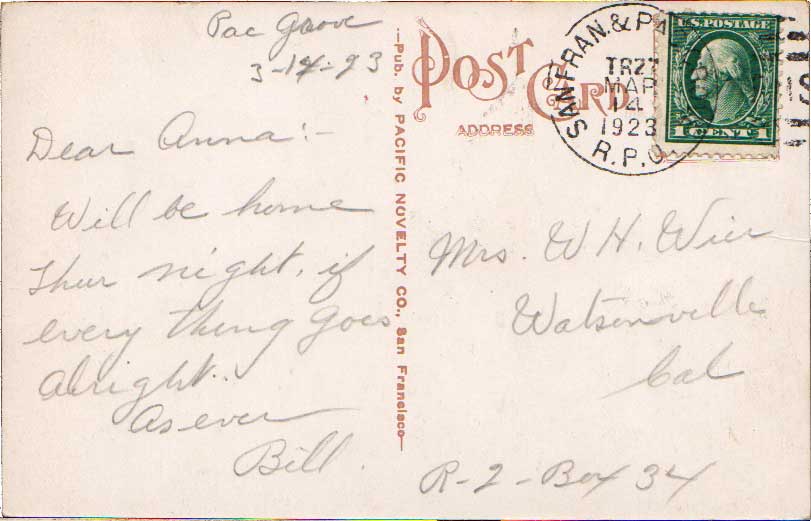 Pac Grove
3-14-23
Dear Anna:-
Will be home
Thur night, if
every thing goes
alright.
As ever
Bill.
—Pub. by PACIFIC NOVELTY CO., San Francisco—
POST CARD
ADDRESS
SAN FRAN. & PAC
TR27
MAR
14
1923
R.P.O.
U.S. POSTAGE
1 CENT 1
Mrs. W H. Wier
Watsonville
Cal
R-2-Box 34